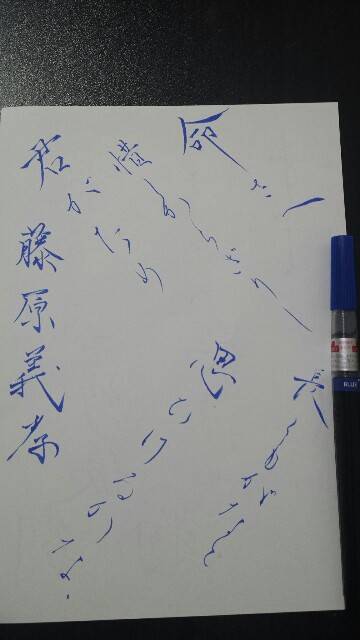 君がため
惜しからざりし
命さへ
長くもがなと
思ひけるかな
藤原義孝
BLU